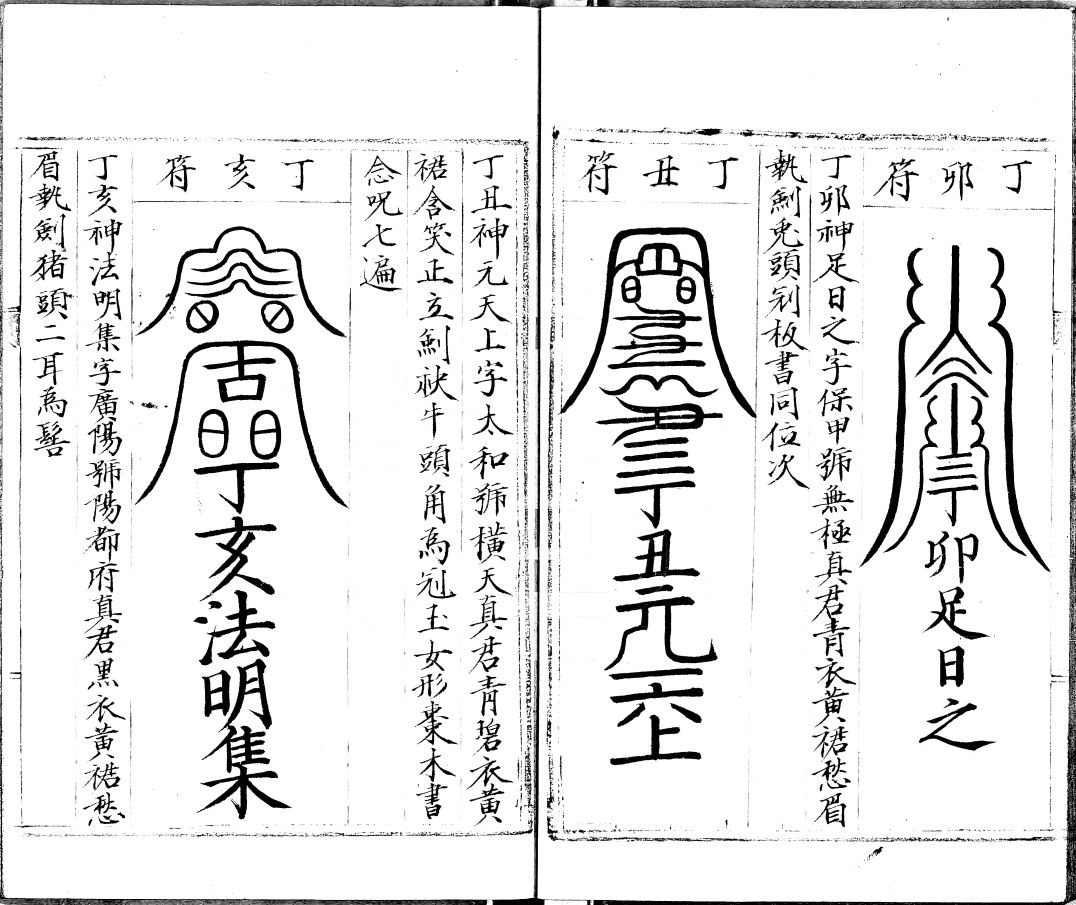 丁卯符
丁卯足日之
丁卯神足日之字保甲號無極真君青衣黄裙愁眉
執劍兎頭剁板書同位次
丁丑符
丁丑元六上
丁丑神元天上字太和號橫天真君青碧衣黄
裙含笑正立劍袂牛頭角為冠玉女形棗木書
念呪七遍
丁亥符
古
丁亥法明集
丁亥神法明集字廣陽號陽都府真君黒衣黄裙愁
眉執劍猪頭二耳為髻